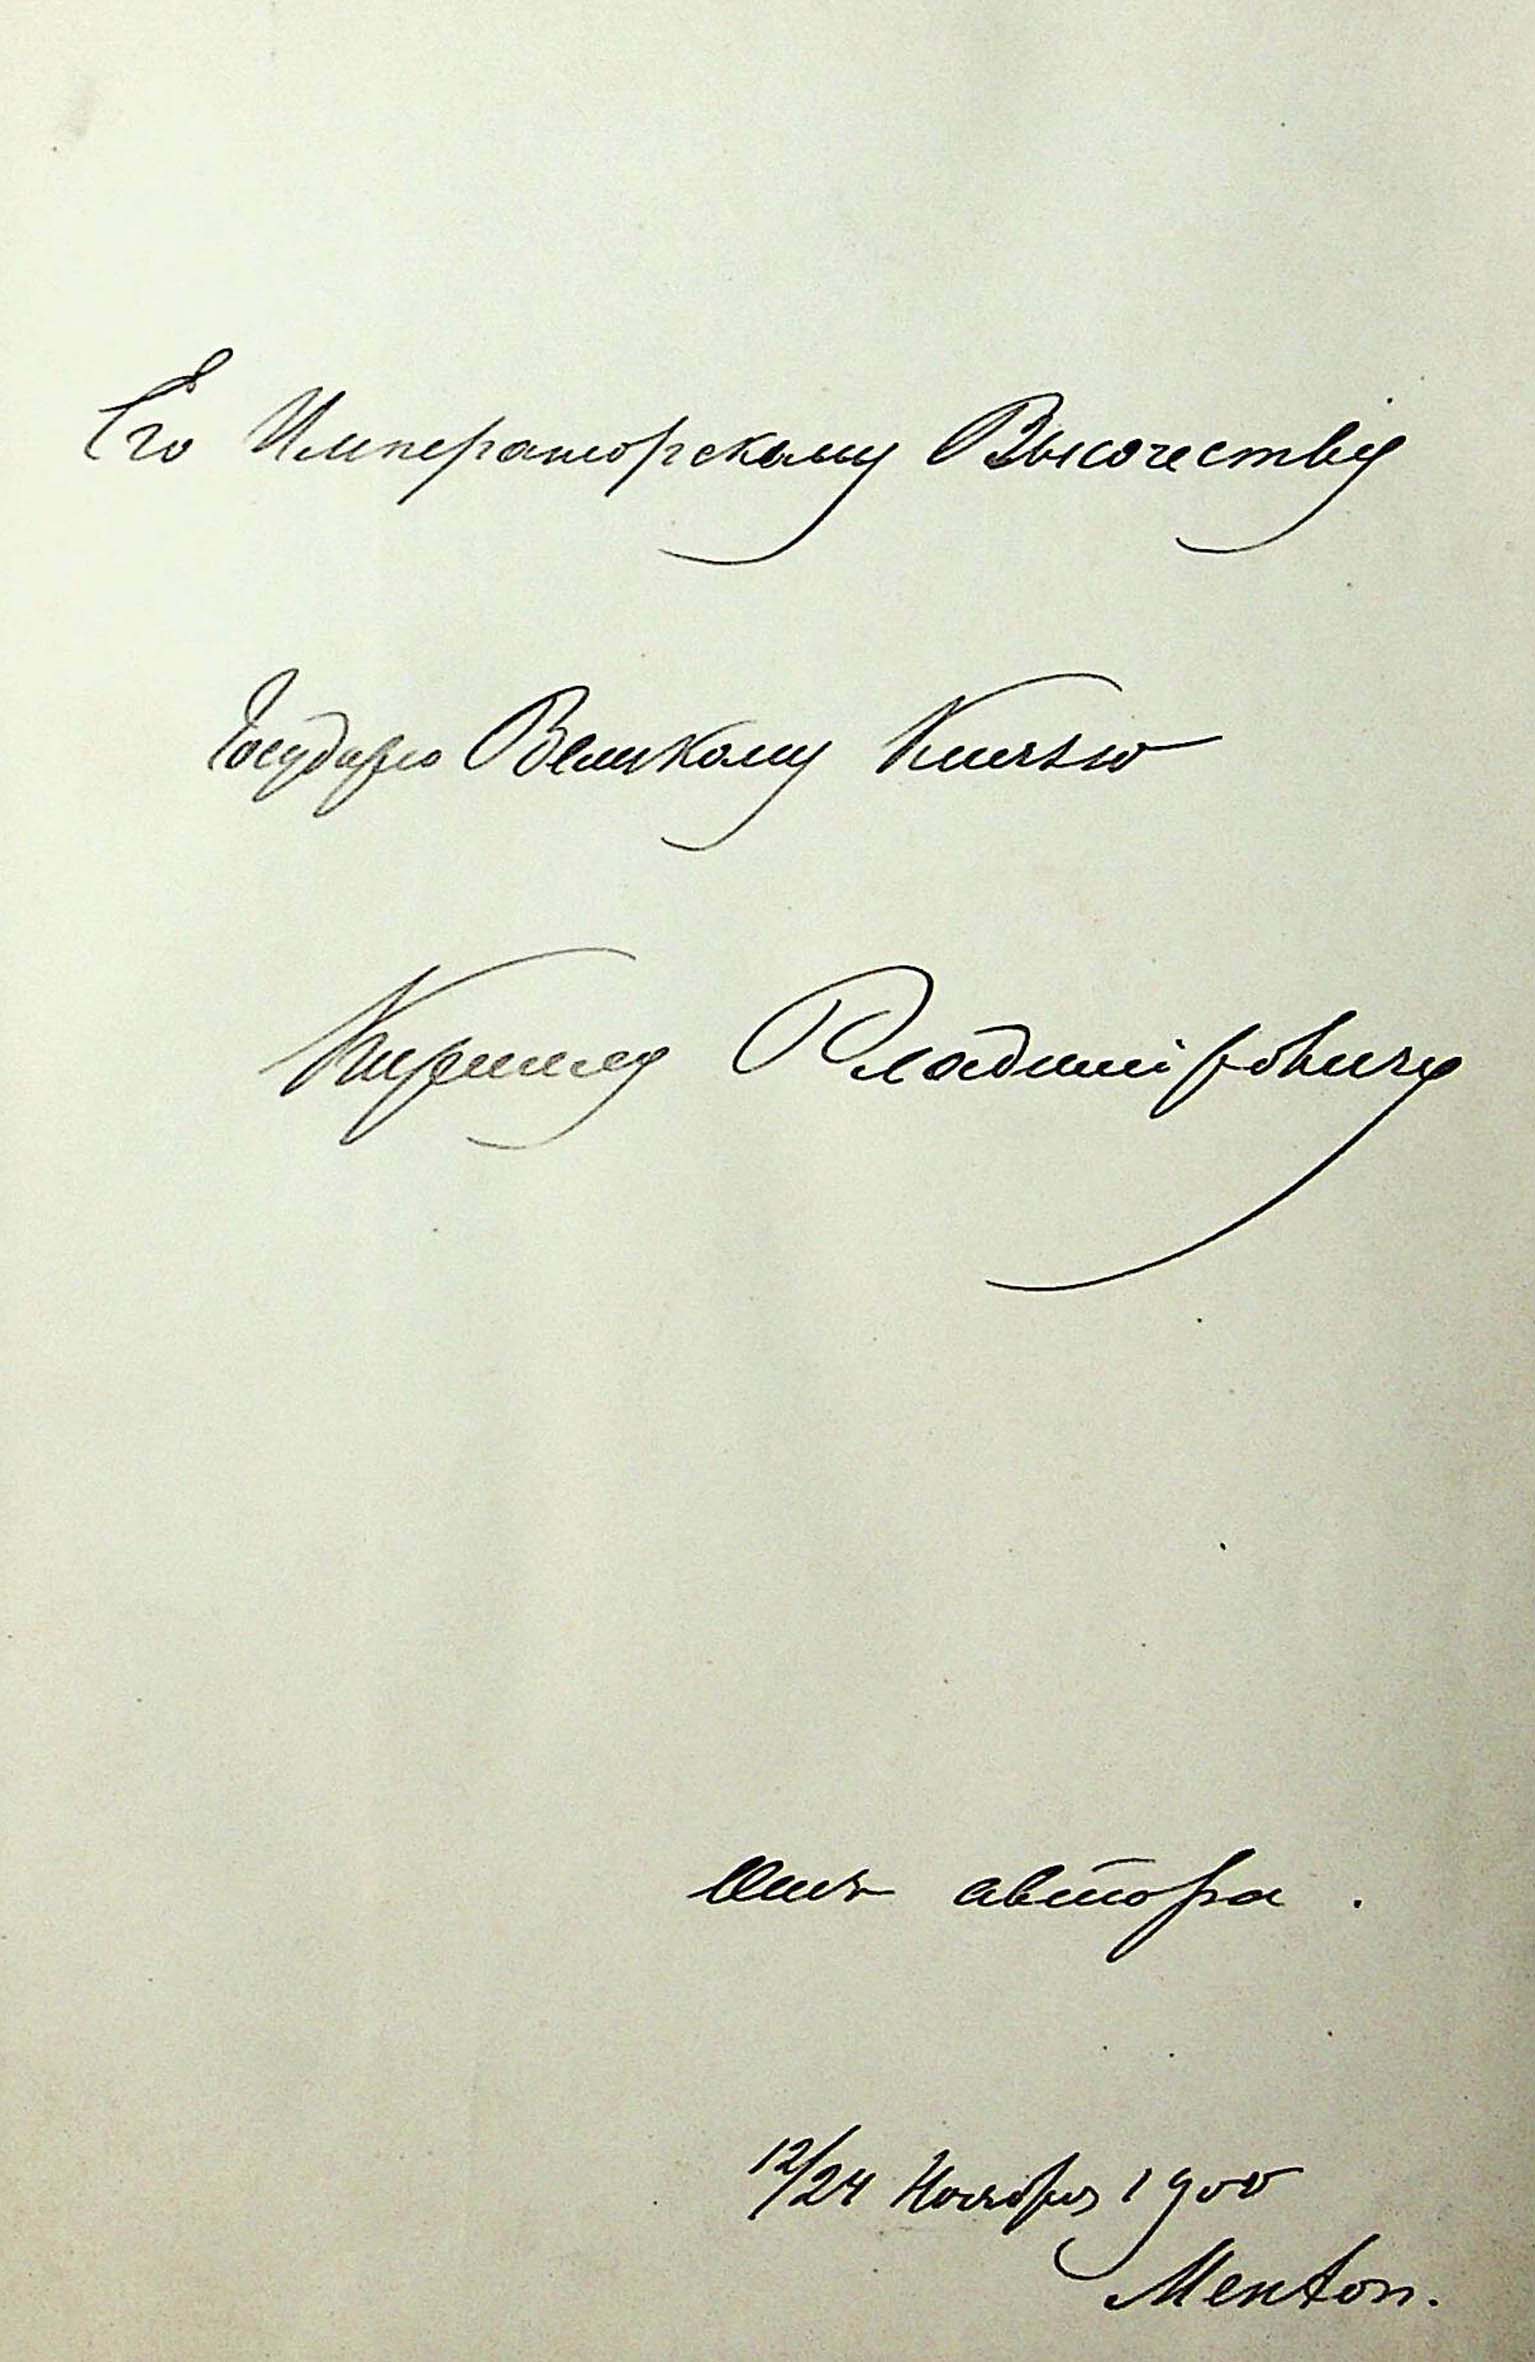 Его Императорскому Высочеству
Государю Великому Князю
Кириллу Владимiровичу
Отъ автора .
12/24 Ноября 1900
Menton.